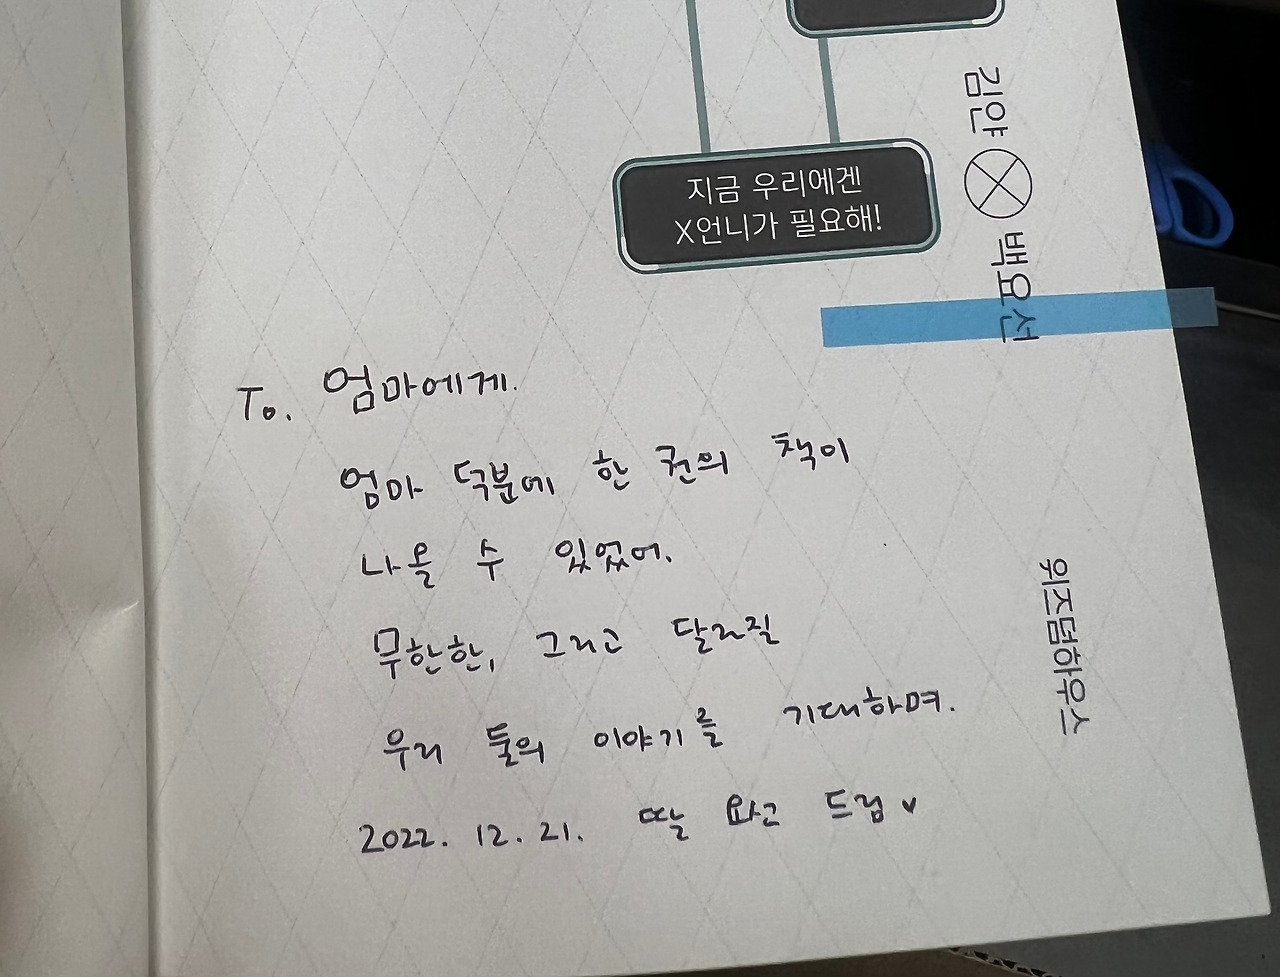 지금 우리에겐
X언니가 필요해!
김얀 ⓧ 백요선
위즈덤하우스
To. 엄마에게.
엄마 덕분에 한 권의 책이
나올 수 있었어.
무한한, 그리고 달라질
우리 둘의 이야기를 기대하며.
2022. 12. 21. 딸 드림